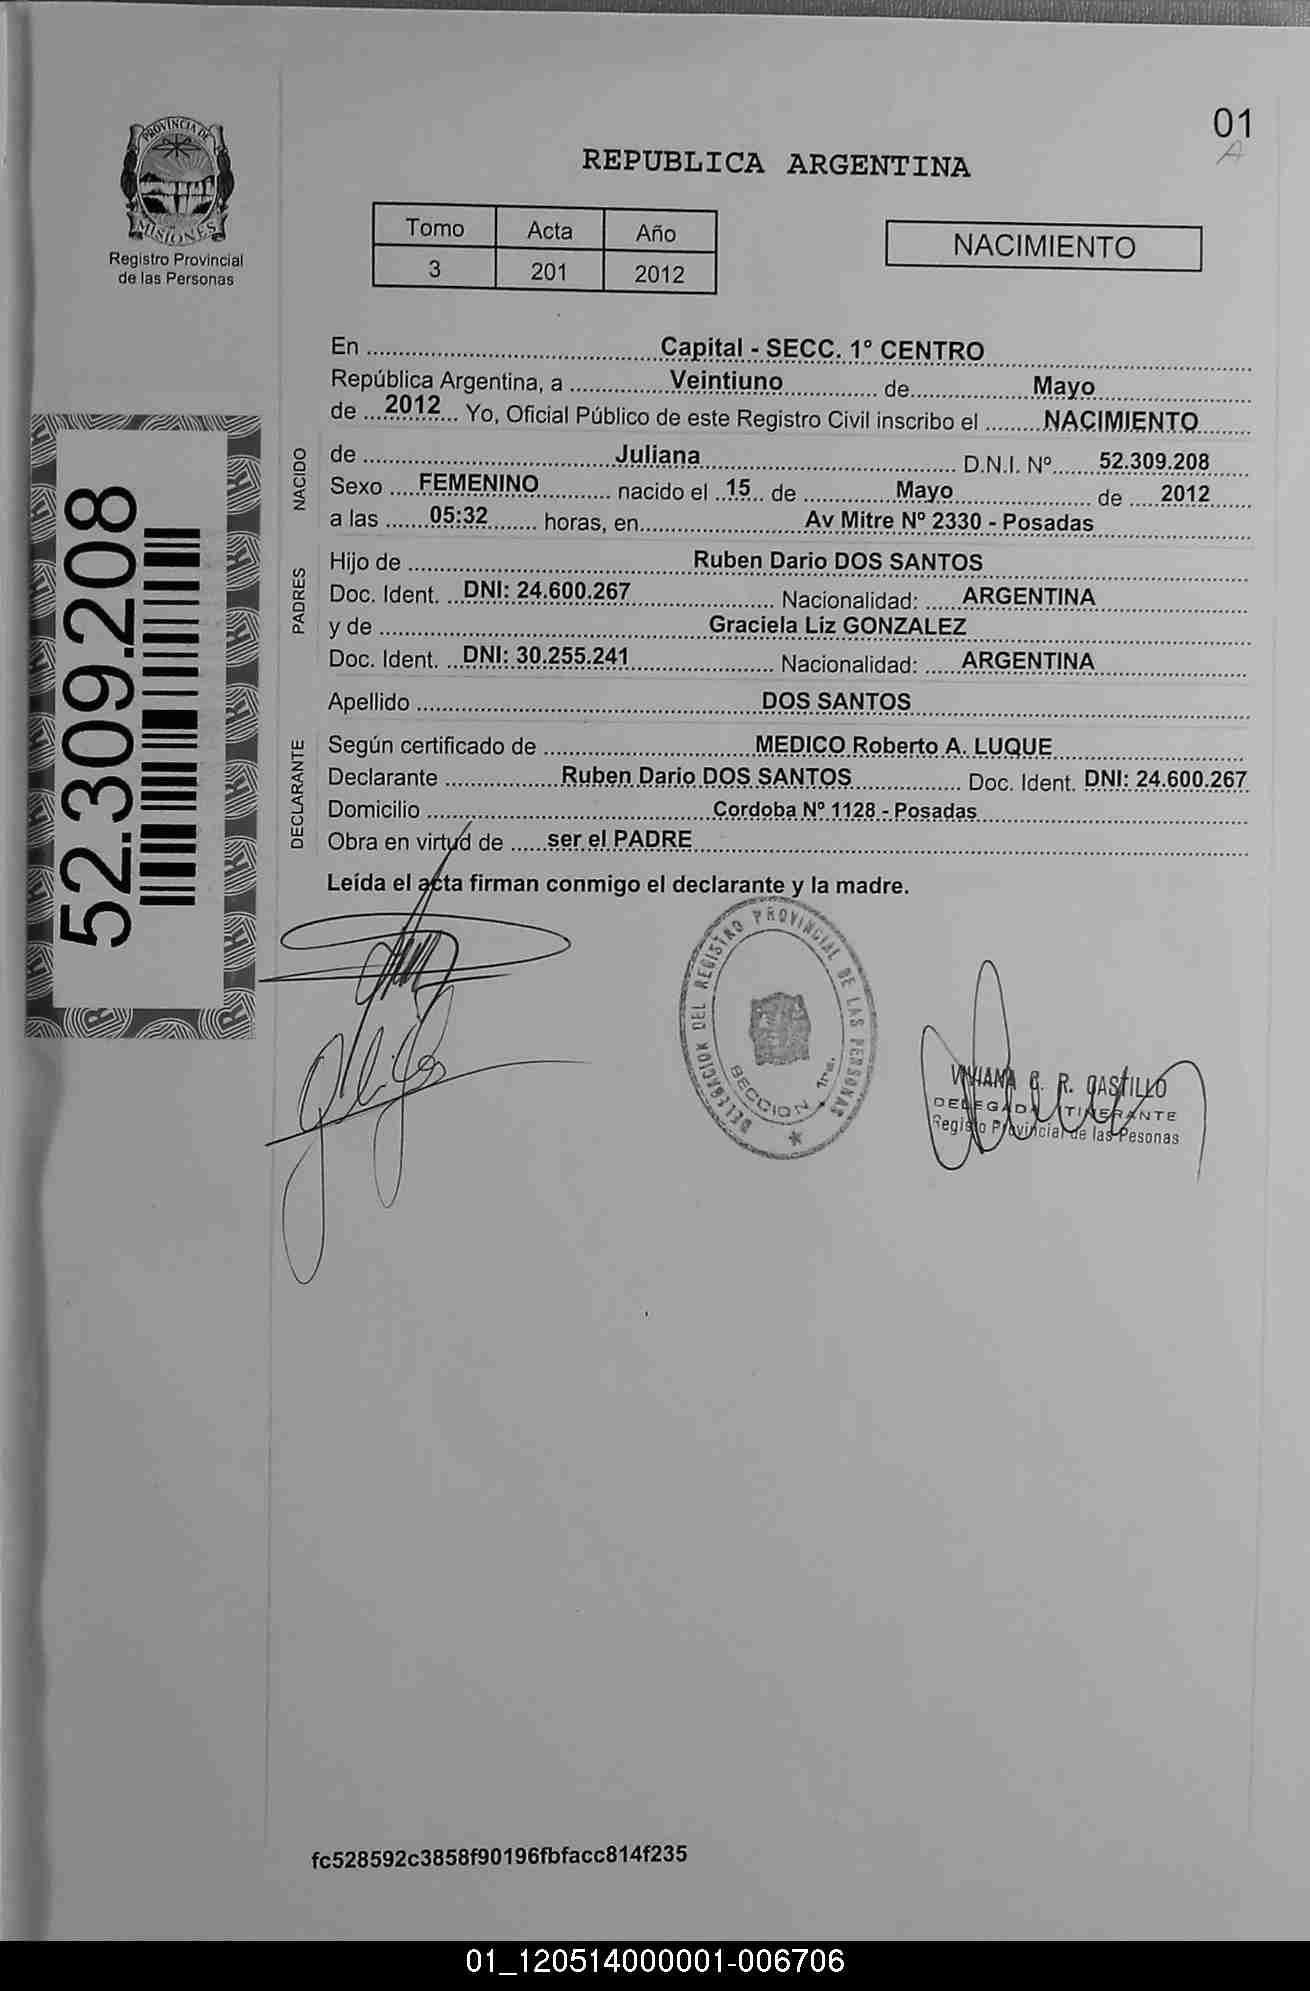 01
A
PROVINCIA DE
MISIONES
Registro Provincial
de las Personas
REPUBLICA ARGENTINA
Tomo Acta Año
3 201 2012
NACIMIENTO
En Capital - SECC. 1° CENTRO
República Argentina, a Veintiuno de Mayo
de 2012 Yo, Oficial Público de este Registro Civil inscribo el NACIMIENTO
NACIDO
de Juliana D.N.I. Nº 52.309.208
Sexo FEMENINO nacido el 15 de Mayo de 2012
a las 05:32 horas, en Av Mitre Nº 2330 - Posadas
PADRES
Hijo de Ruben Dario DOS SANTOS
Doc. Ident. DNI: 24.600.267 Nacionalidad: ARGENTINA
y de Graciela Liz GONZALEZ
Doc. Ident. DNI: 30.255.241 Nacionalidad: ARGENTINA
Apellido DOS SANTOS
DECLARANTE
Según certificado de MEDICO Roberto A. LUQUE
Declarante Ruben Dario DOS SANTOS Doc. Ident. DNI: 24.600.267
Domicilio Cordoba Nº 1128 - Posadas
Obra en virtud de ser el PADRE
Leída el acta firman conmigo el declarante y la madre.
52.309.208
DELEGACION DEL REGISTRO PROVINCIAL DE LAS PERSONAS
SECCION 1ra.
VIVIANA G. R. CASTILLO
DELEGADA ITINERANTE
Registro Provincial de las Pesonas
fc528592c3858f90196fbfacc814f235
01_120514000001-006706